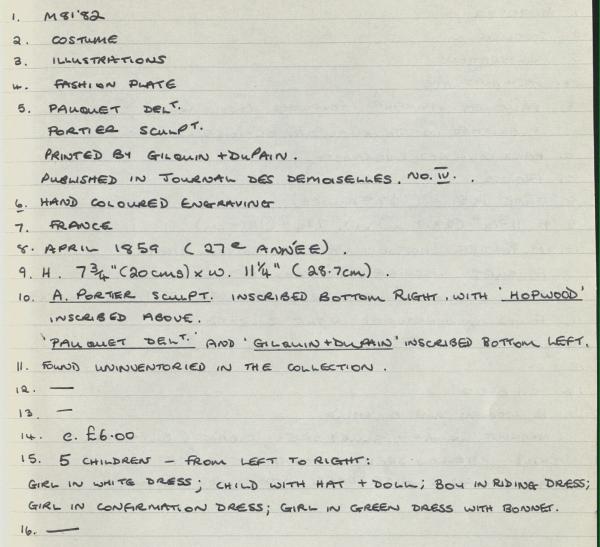 1. M81'82
2. COSTUME
3. ILLUSTRATIONS
4. FASHION PLATE
5. PAUQUET DELT.
PORTIER SCULPT.
PRINTED BY GILQUIN + DUPAIN.
PUBLISHED IN JOURNAL DES DEMOISELLES. NO. IV.
6. HAND COLOURED ENGRAVING
7. FRANCE
8. APRIL 1859 (27e ANNÉE).
9. H. 7 3/4" (20cms) x W. 11 1/4" (28.7cm).
10. A. PORTIER SCULPT. INSCRIBED BOTTOM RIGHT, WITH 'HOPWOOD'
INSCRIBED ABOVE.
'PAUQUET DELT.' AND 'GILQUIN + DUPAIN' INSCRIBED BOTTOM LEFT.
11. FOUND UNINVENTORIED IN THE COLLECTION.
12. —
13. —
14. c. £6.00
15. 5 CHILDREN – FROM LEFT TO RIGHT:
GIRL IN WHITE DRESS; CHILD WITH HAT + DOLL; BOY IN RIDING DRESS;
GIRL IN CONFIRMATION DRESS; GIRL IN GREEN DRESS WITH BONNET.
16. —